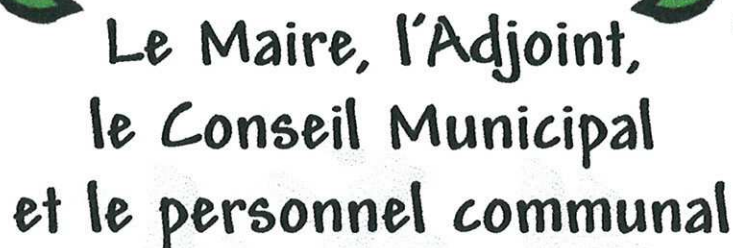 Le Maire, l'Adjoint,
le Conseil Municipal
et le personnel communal